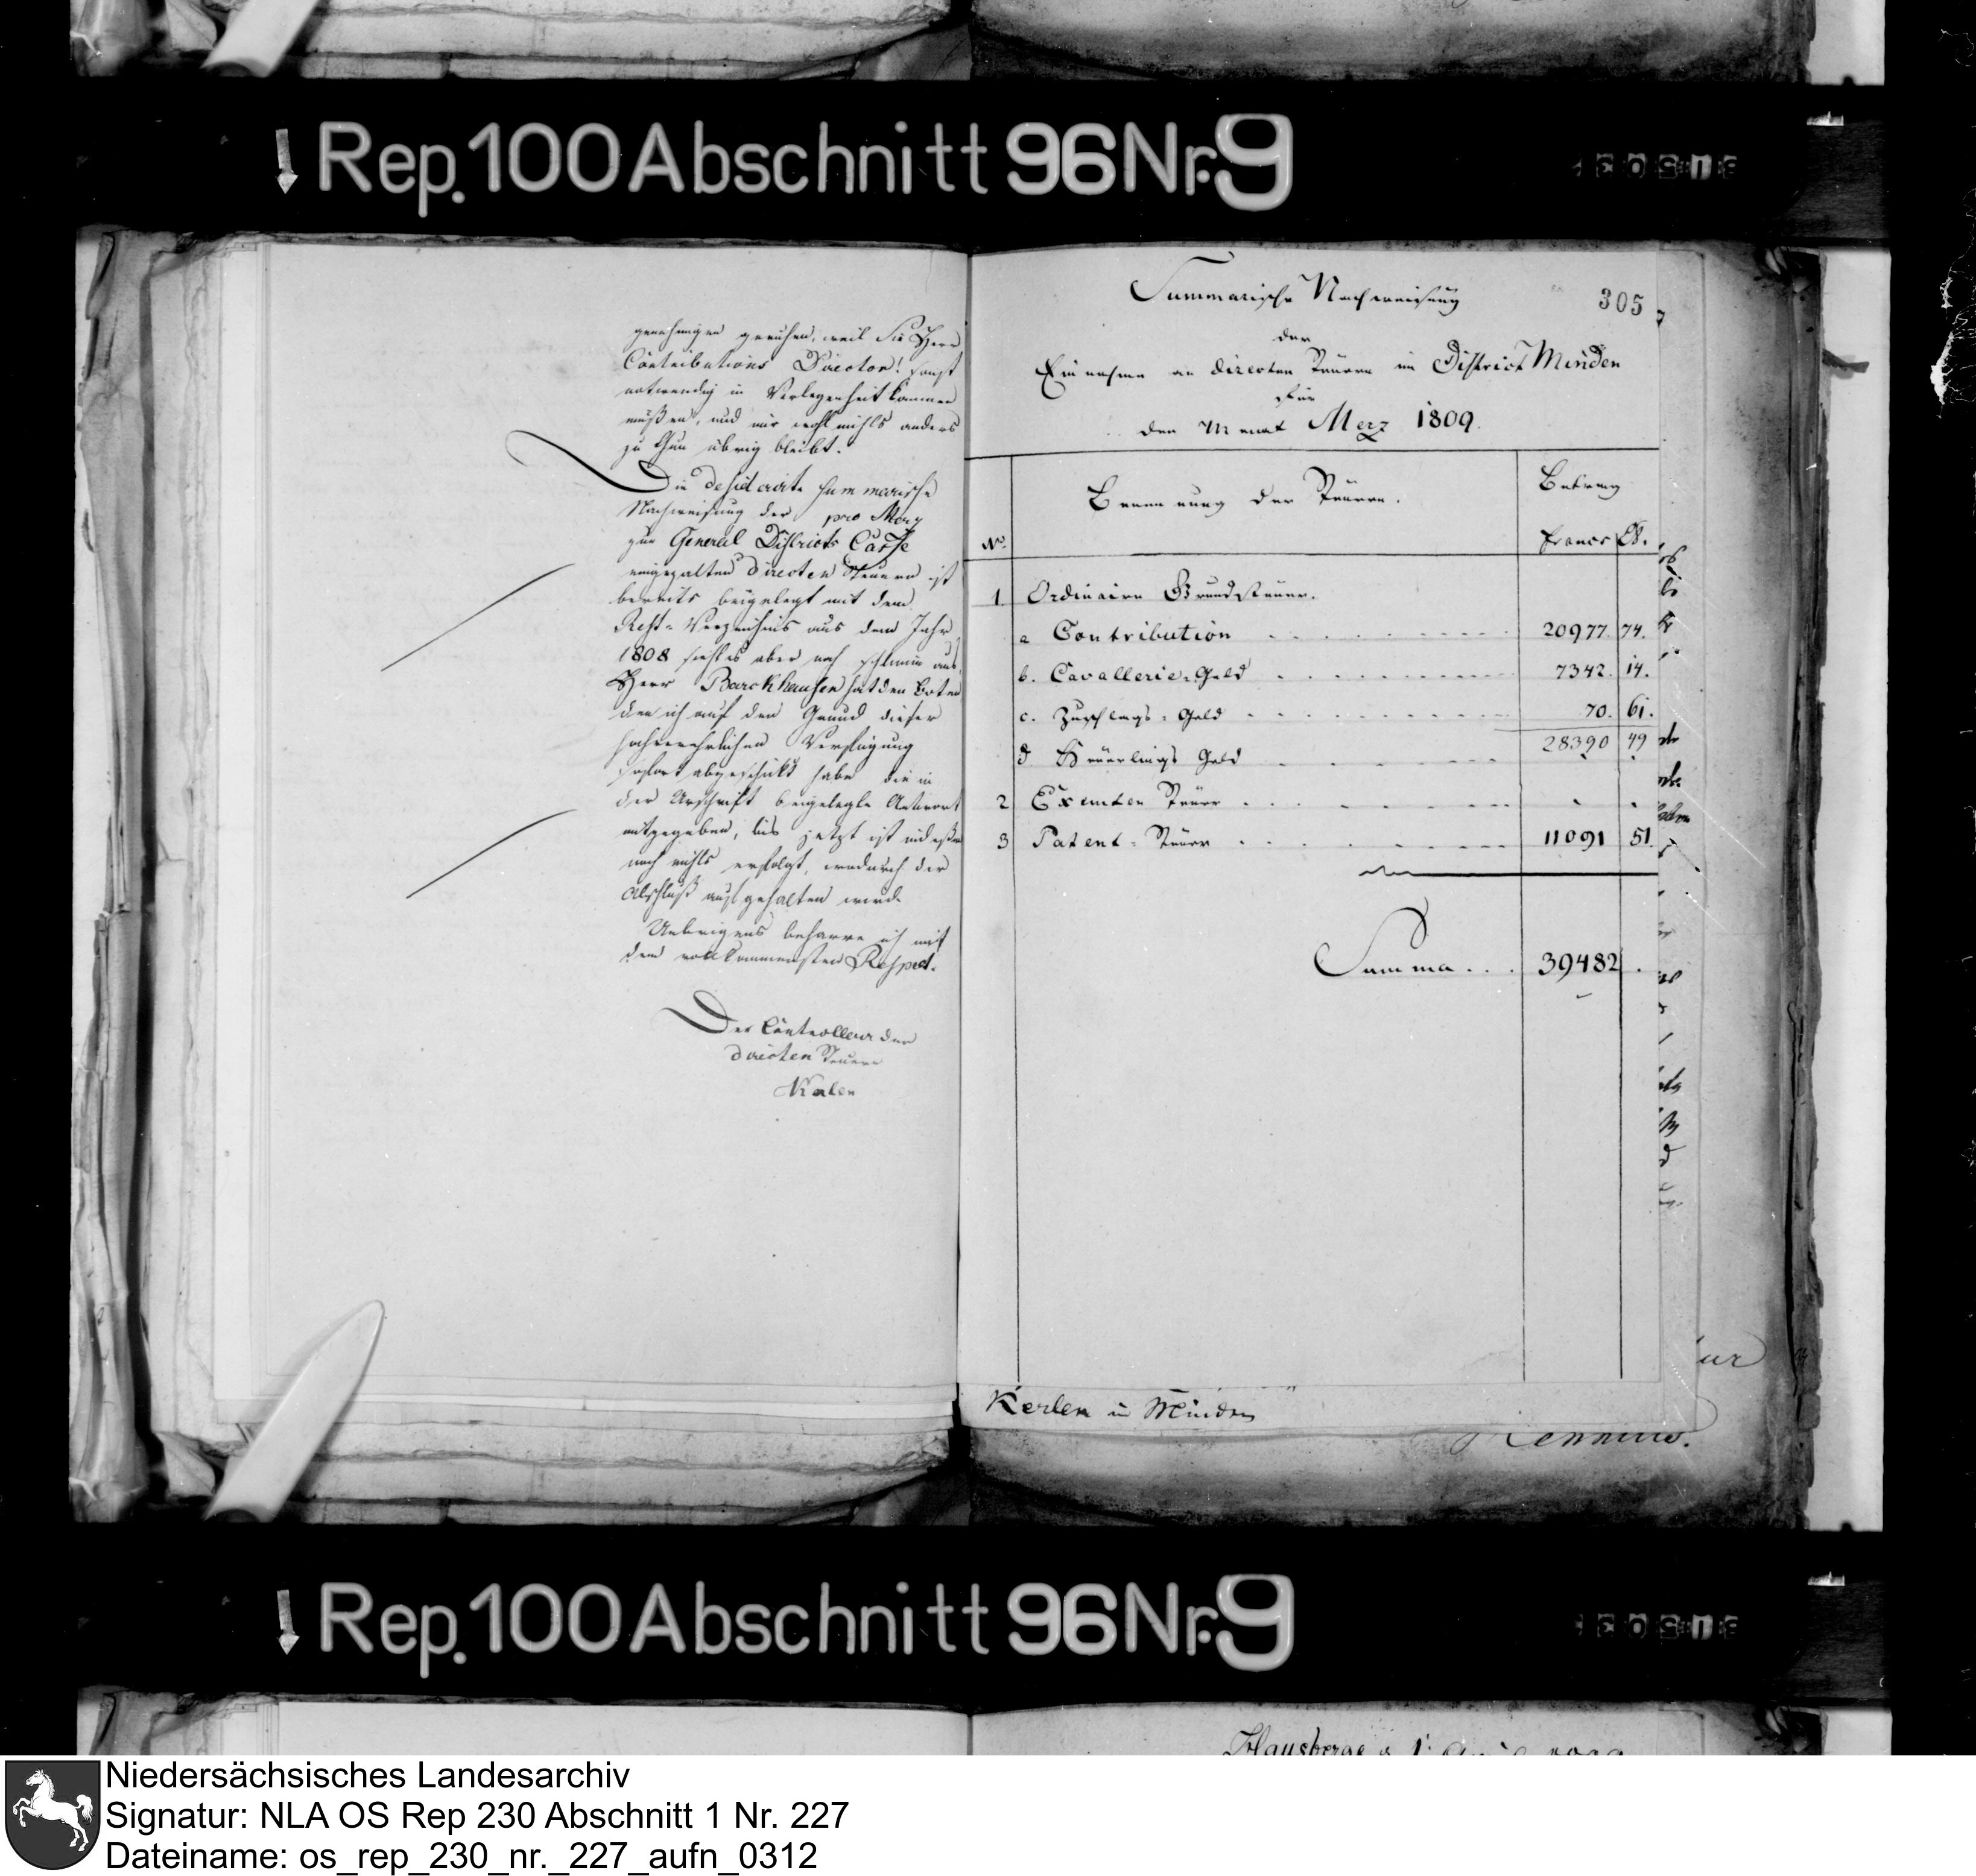 Rep. 100 Abschnitt 96 Nr. 9
genehmigen geruhen, weil Sie Herr
Contributions Director! sonst
nothwendig in Verlegenheit kommen
müßen, und mir wohl nichts anders
zu thun übrig bleibt.
Die desiderirte summarische
Nachweisung der pro Merz
zur General Districts Casse
eingezalten directen Steuern ist
bereits beigelegt mit dem
Rest-Verzeichnis aus dem Jahr
1808 sieht es aber noch schlimm aus,
Herr Barckhausen hat den Boten
den ich auf den Grund dieser
hochverehrlichen Verfügung
sofort abgeschickt habe die in
der Urschrift beigelegte Antwort
mitgegeben, bis jetzt ist indeßen
noch nichts erfolgt, wodurch der
Abschluß aufgehalten wird.
Uebrigens beharre ich mit
dem vollkommensten Respect.
Der Controlleur der
directen Steuern
305
Summarische Nachweisung
der
Einnahme an directen Steuern im District Minden
für
den Monat Merz 1809.
No. Benennung der Steuern. Betrag
Francs Ct.
1 Ordinaire Grundsteuer.
a Contribution 20977. 74.
b. Cavallerie-Geld 7342. 14.
c. Zuschlags-Geld 70. 61.
28390 49
d Heuerlings Geld
2 Exemten Steuer
3 Patent-Steuer 11091 51.
Summa 39482 .
Kerlen in Minden
Rep. 100 Abschnitt 96 Nr. 9
Hausberge
Niedersächsisches Landesarchiv
Signatur: NLA OS Rep 230 Abschnitt 1 Nr. 227
Dateiname: os_rep_230_nr._227_aufn_0312